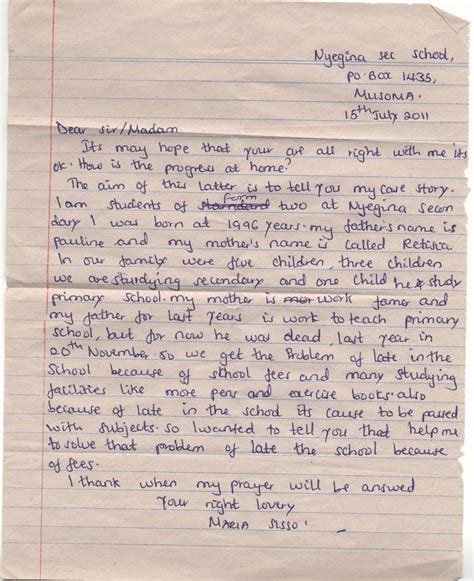 Nyegina sec school,
P.O. Box 1435,
MUSOMA.
15th July 2011
Dear Sir/Madam
Its may hope that your are all right with me its
ok. How is the progress at home?
The aim of this latter is to tell you my care story.
I am students of starndard form two at Nyegina secon
dary I was born at 1996 years. my father's name is
pauline and my mother's name is called Retisia
In our family were five children, three children
we are sturdying secondary and one child he study
primary school. my mother is work famer and
my father for last years is work to teach primary
school, but for now he was dead, last year in
20th November. so we get the Problem of late in the
school because of school fees and many studying
facilities like more pens and exercise books. also
because of late in the school its cause to be passed
with subjects. so I wanted to tell you that help me
to solve that problem of late the school because
of fees.
I thank when my prayer will be answed
Your right lovery
MARIA SISSO